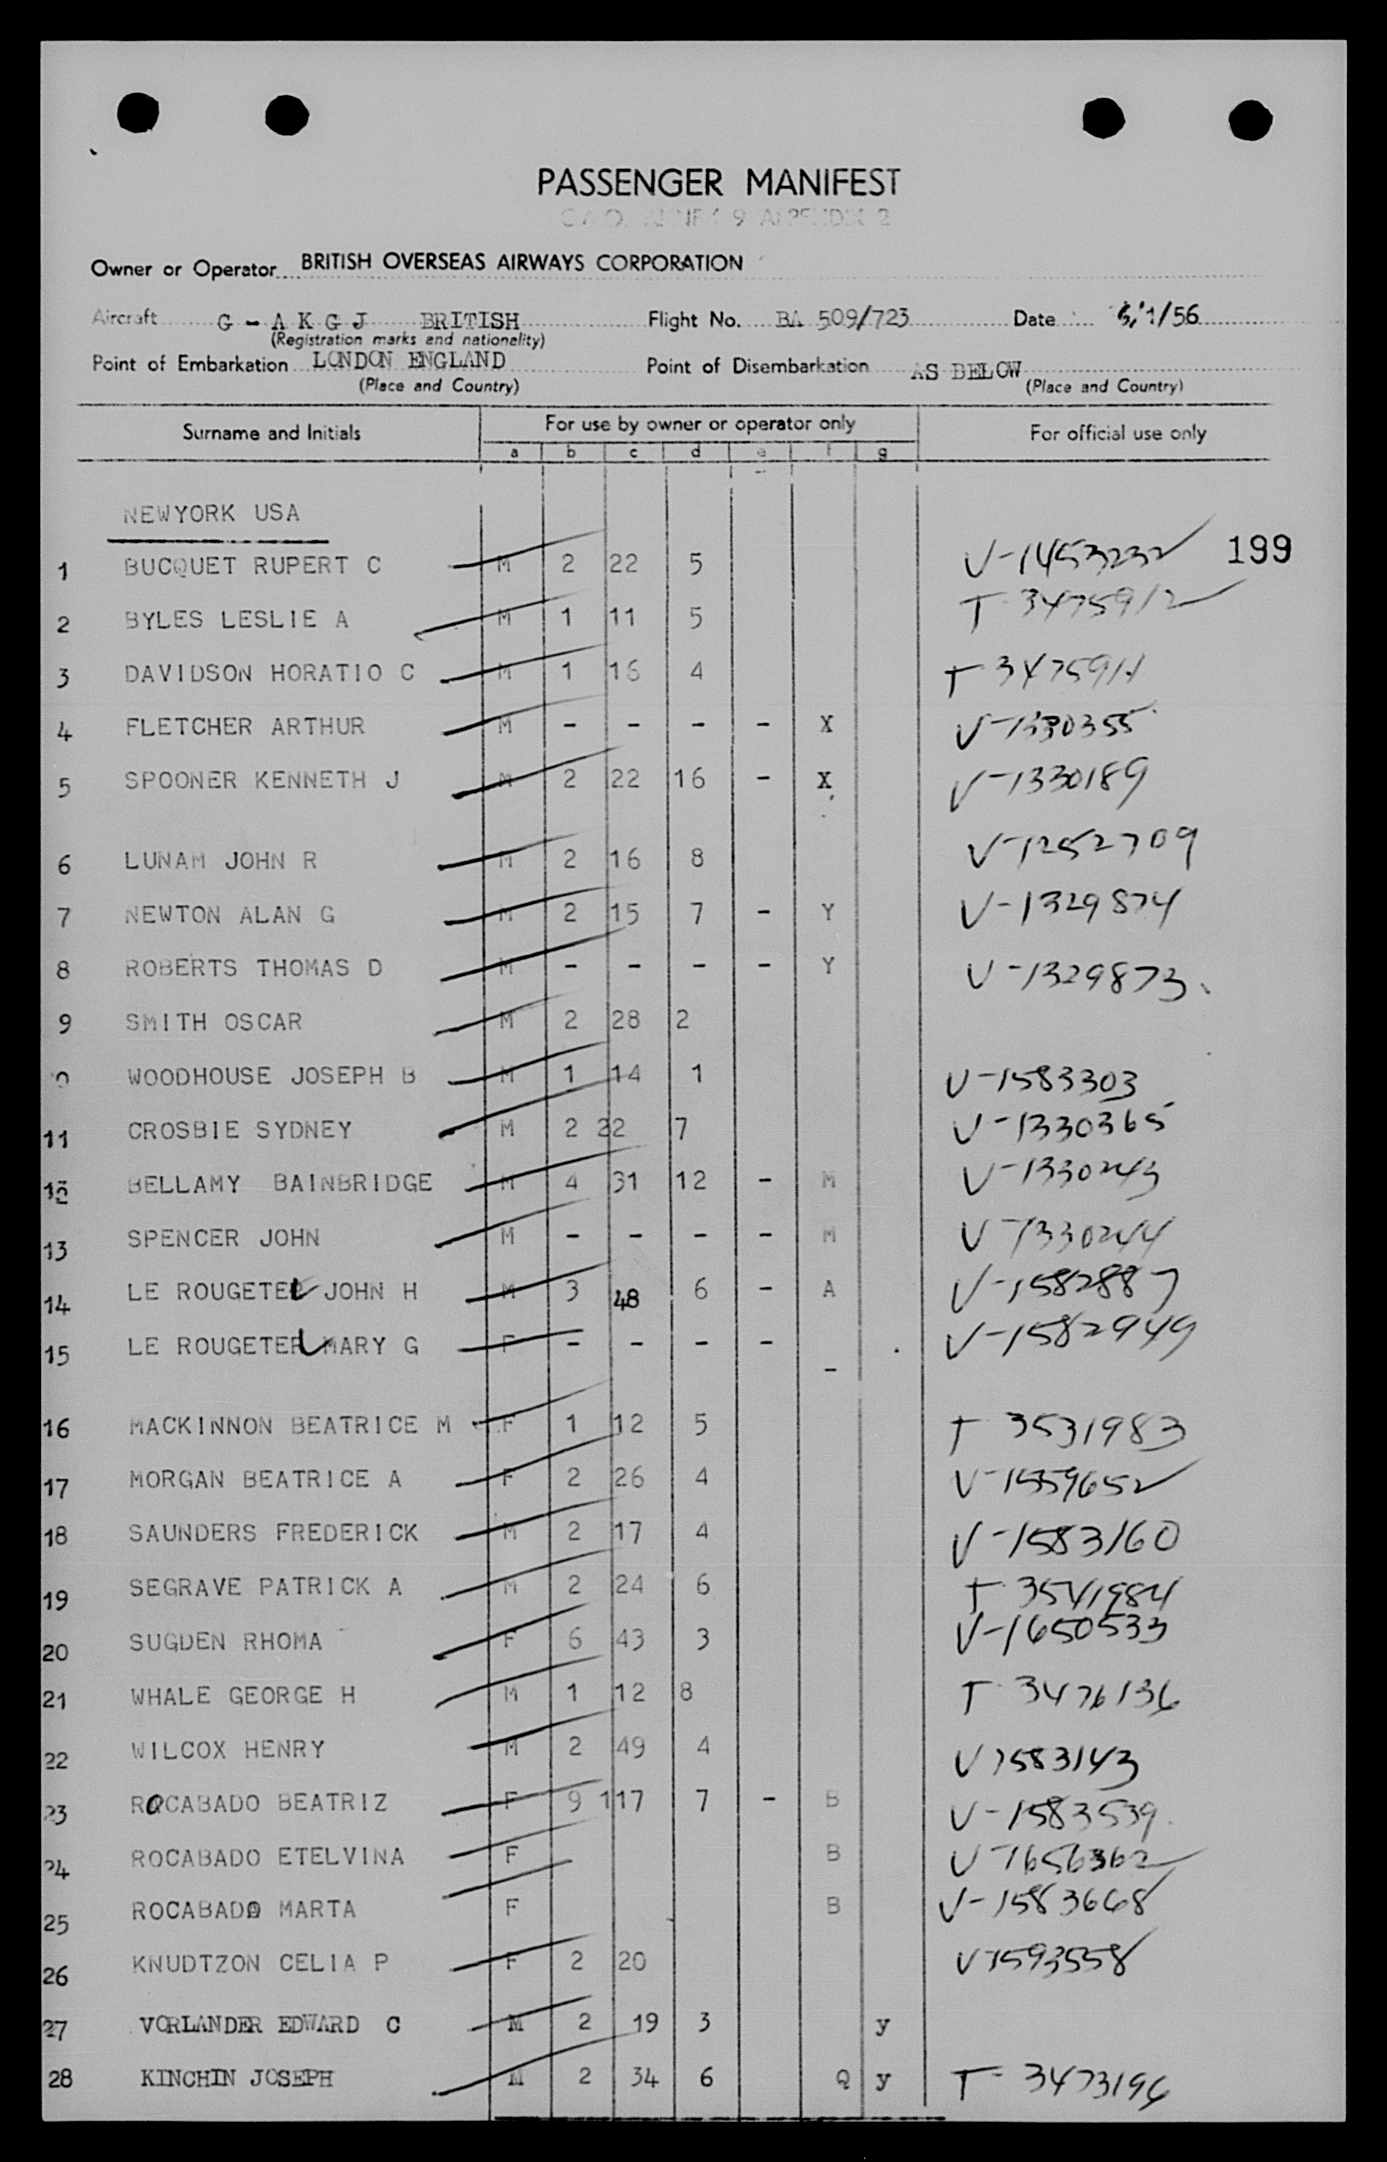 PASSENGER MANIFEST
9 2
Owner or Operator BRITISH OVERSEAS AIRWAYS CORPORATION
Aircraft G - A K G J BRITISH Flight No. BA 509/723 Date /1/56
(Registration marks and nationality)
Point of Embarkation LONDON ENGLAND Point of Disembarkation AS BELOW
(Place and Country) (Place and Country)
Surname and Initials For use by owner or operator only For official use only
a b c d e f g
NEWYORK USA
1 BUCQUET RUPERT C M 2 22 5 V-1453232 199
2 BYLES LESLIE A M 1 11 5 T 3475912
3 DAVIDSON HORATIO C M 1 16 4 T 3475911
4 FLETCHER ARTHUR M - - - - X V-1330355
5 SPOONER KENNETH J M 2 22 16 - X V-1330189
6 LUNAM JOHN R M 2 16 8 V-1252709
7 NEWTON ALAN G M 2 15 7 - Y V-1329874
8 ROBERTS THOMAS D M - - - - Y V-1329873
9 SMITH OSCAR M 2 28 2
WOODHOUSE JOSEPH B M 1 14 1 V-1583303
11 CROSBIE SYDNEY M 2 22 7 V-1330365
12 BELLAMY BAINBRIDGE M 4 31 12 - M V-1330243
13 SPENCER JOHN M - - - - M V-1330244
14 LE ROUGETEL JOHN H M 3 48 6 - A V-1582887
15 LE ROUGETEL MARY G F - - - - - V-1582949
16 MACKINNON BEATRICE M F 1 12 5 T 3531983
17 MORGAN BEATRICE A F 2 26 4 V-1559652
18 SAUNDERS FREDERICK M 2 17 4 V-1583160
19 SEGRAVE PATRICK A M 2 24 6 T 3541984
20 SUGDEN RHOMA F 6 43 3 V-1650533
21 WHALE GEORGE H M 1 12 8 T 3476136
22 WILCOX HENRY M 2 49 4 V 1583143
23 ROCABADO BEATRIZ F 9 117 7 - B V-1583539
24 ROCABADO ETELVINA F B V-1656362
25 ROCABADO MARTA F B V-1583668
26 KNUDTZON CELIA P F 2 20 V-1593558
27 VORLANDER EDWARD C M 2 19 3 y
28 KINCHIN JOSEPH M 2 34 6 Q y T- 3473196